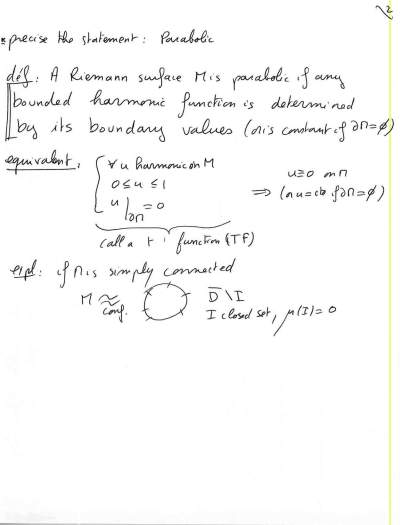 2
* precise the statement: Parabolic
déf: A Riemann surface M is parabolic if any
bounded harmonic function is determined
by its boundary values (or is constant if ∂M=∅)
equivalent: { ∀ u harmonic on M
0≤u≤1
u|∂M = 0
u≡0 on M
⇒ (or u=cte if ∂M=∅)
call a function (TF)
expl: if M is simply connected
M ≈ conf. D̄ \ I
I closed set, μ(I)=0